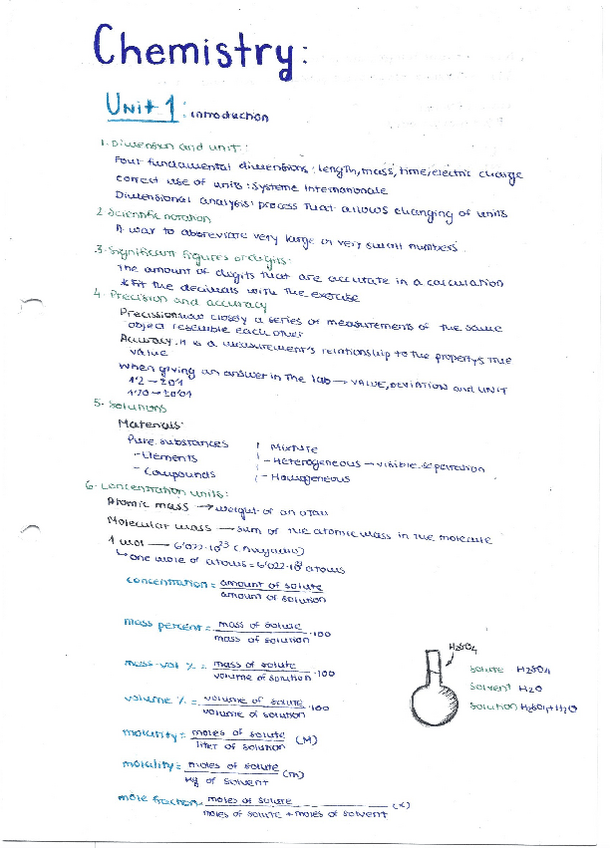 Chemistry:
Unit 1: introduction
1. Dimension and unit:
Four fundamental dimensions: length, mass, time, electric charge
correct use of units: Systeme Internationale
Dimensional analysis: process that allows changing of units
2. Scientific notation
A way to abbreviate very large or very small numbers.
3. Significant figures or digits:
The amount of digits that are accurate in a calculation
* Fit the decimals with the exercise
4. Precision and accuracy
Precision: how closely a series of measurements of the same
object resemble each other
Accuracy: it is a measurement's relationship to the property's true
value
When giving an answer in the lab → VALUE, DEVIATION and UNIT
5. Solutions
Materials:
Pure substances
- Elements
- Compounds
Mixture
- Heterogeneous → visible separation
- Homogeneous
6. Concentration units:
Atomic mass → weight of an atom
Molecular mass → sum of the atomic mass in the molecule
1 mol — 6'022·10²³ (Avogadro)
↳ one mole of atoms = 6'022·10²³ atoms
concentration = amount of solute
amount of solution
mass percent = mass of solute · 100
mass of solution
mass-vol % = mass of solute · 100
volume of solution
volume % = volume of solute · 100
volume of solution
molarity = moles of solute (M)
liter of solution
molality = moles of solute (m)
kg of solvent
mole fraction = moles of solute (x)
moles of solute + moles of solvent
H₂SO₄
Solute H₂SO₄
Solvent H₂O
Solution H₂SO₄ + H₂O